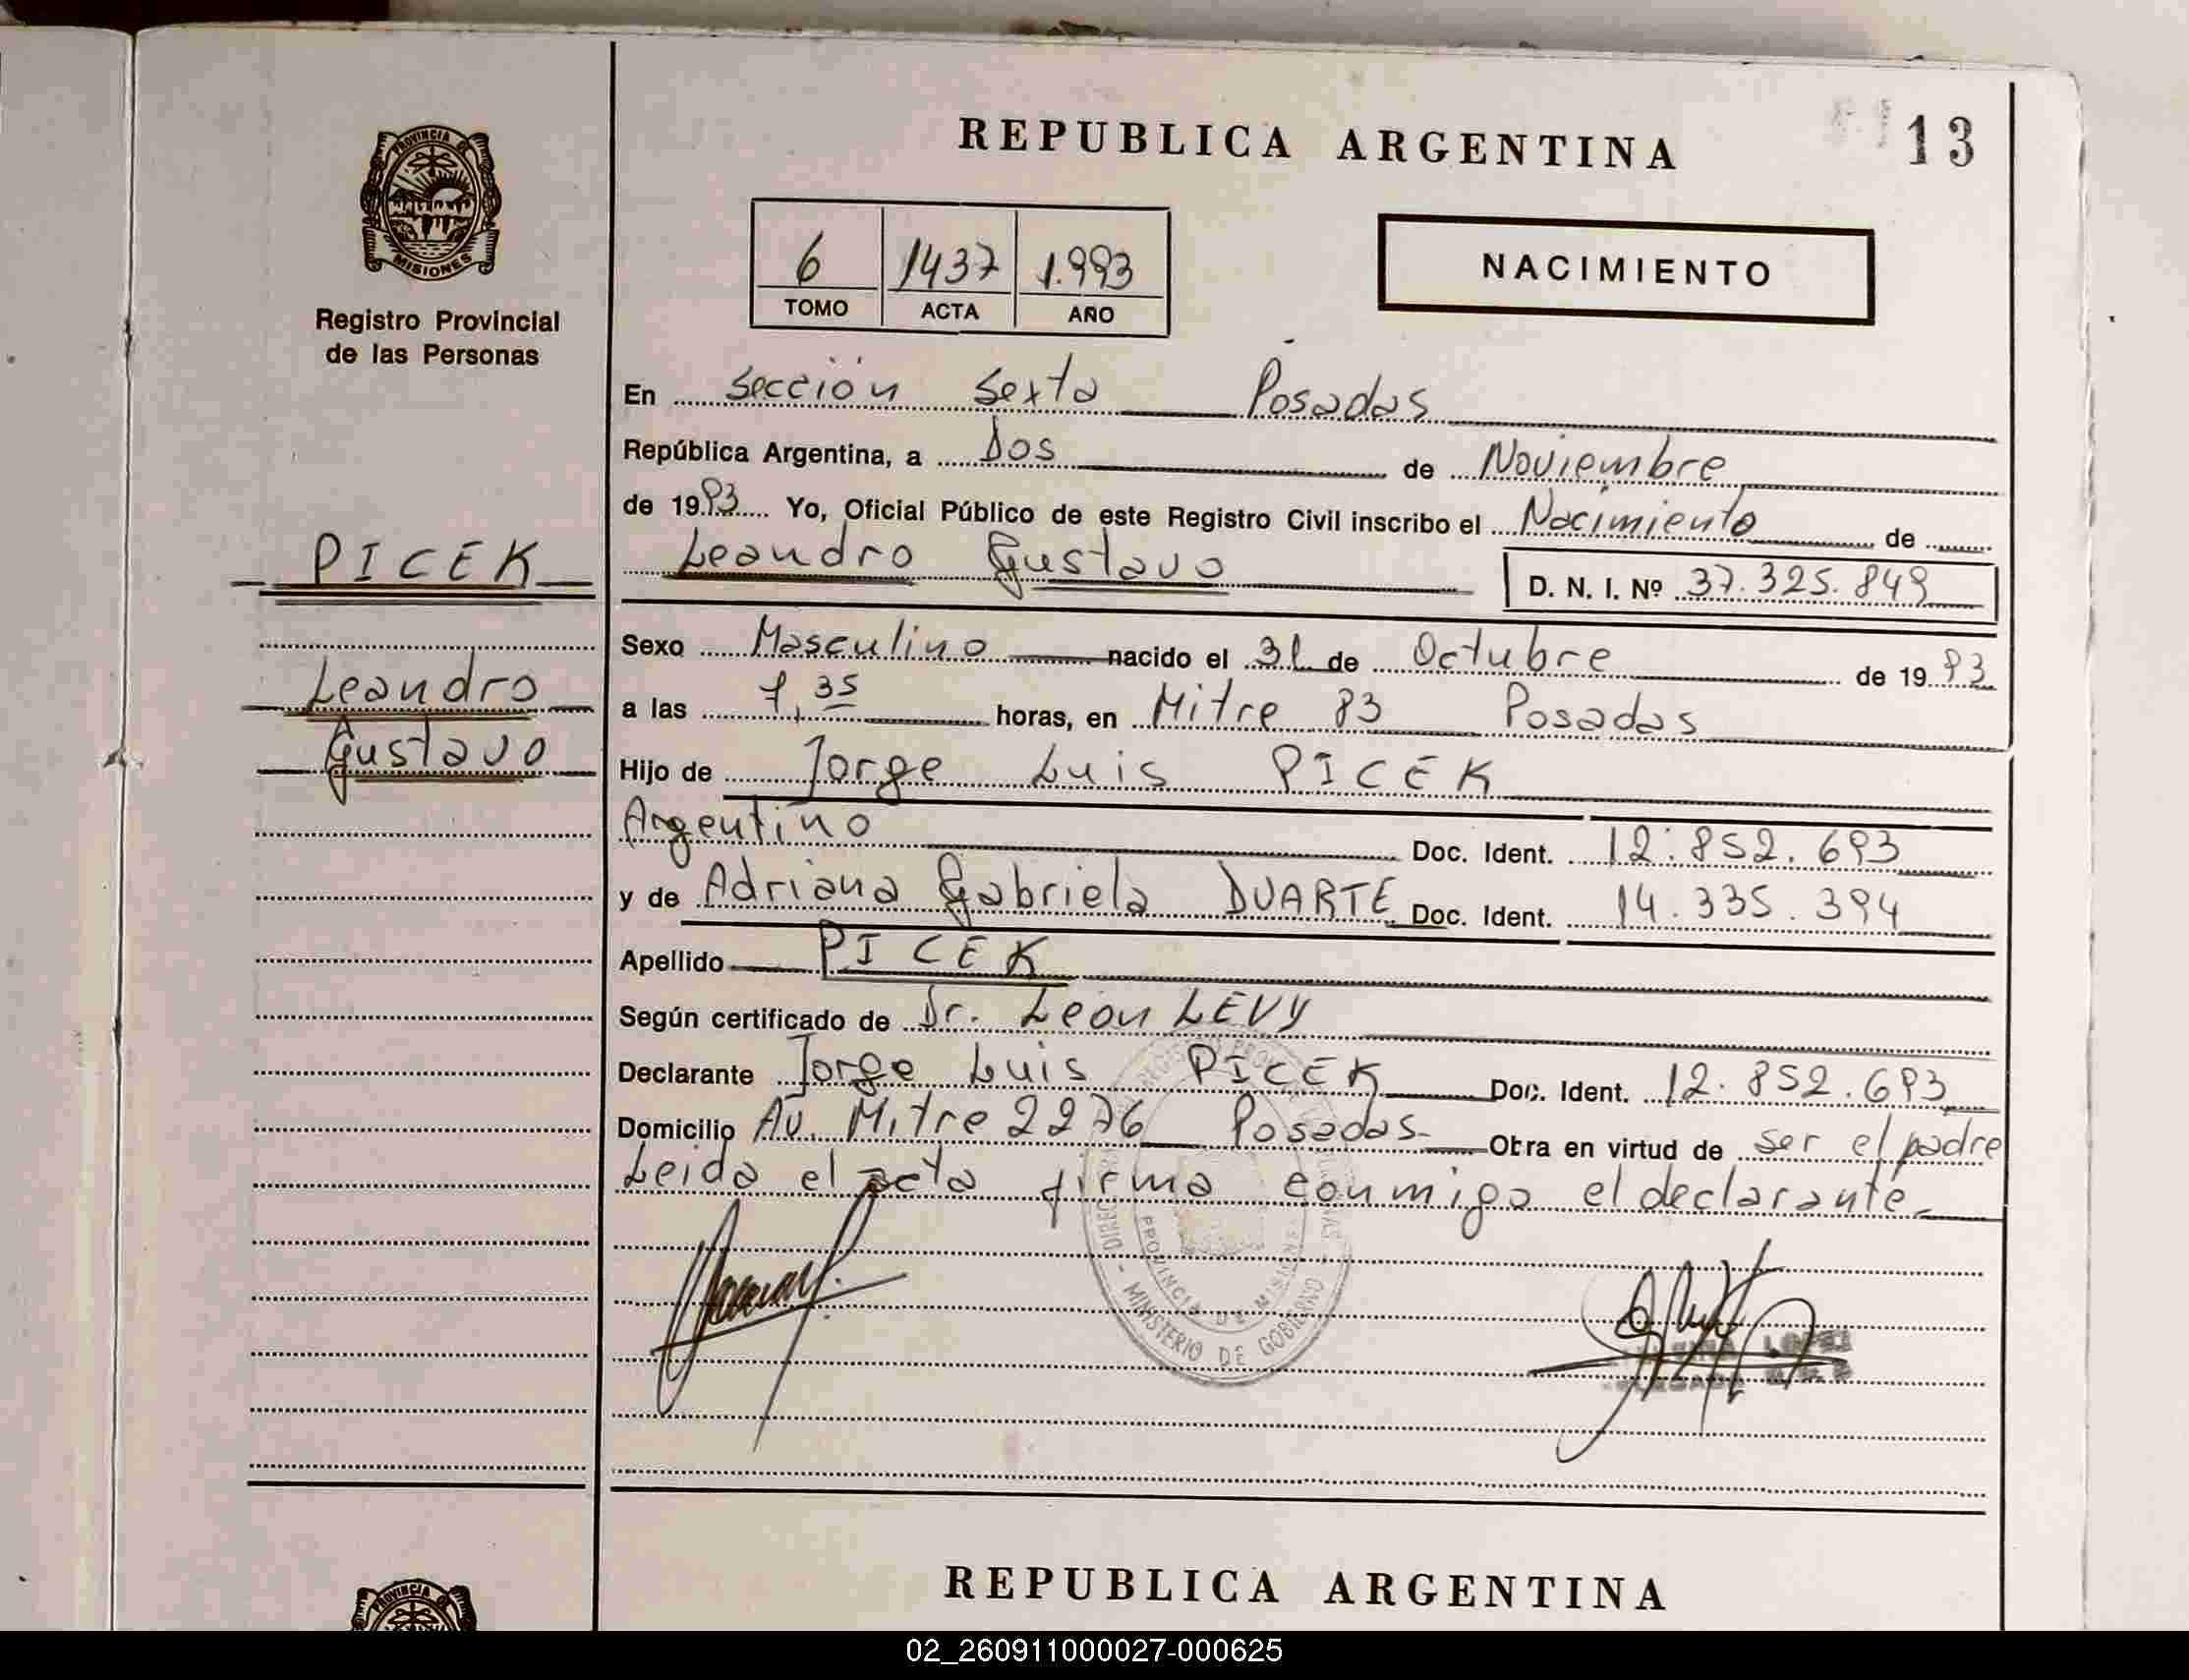 REPUBLICA ARGENTINA
13
PROVINCIA DE
MISIONES
Registro Provincial
de las Personas
6 1437 1.993
TOMO ACTA AÑO
NACIMIENTO
En Sección Sexta Posadas
República Argentina, a Dos de Noviembre
de 1993 Yo, Oficial Público de este Registro Civil inscribo el Nacimiento de
Leandro Gustavo D. N. I. Nº 37.325.849
PICEK
Leandro
Gustavo
Sexo Masculino nacido el 31 de Octubre de 1993
a las 7,35 horas, en Mitre 83 Posadas
Hijo de Jorge Luis PICEK
Argentino Doc. Ident. 12.852.693
y de Adriana Gabriela DUARTE Doc. Ident. 14.335.394
Apellido PICEK
Según certificado de Dr. León LEVY
Declarante Jorge Luis PICEK Doc. Ident. 12.852.693
Domicilio Av. Mitre 2276 Posadas Obra en virtud de ser el padre
Leida el acta firma conmigo el declarante
PROVINCIA DE MISIONES
MINISTERIO DE GOBIERNO
LOPEZ
REPUBLICA ARGENTINA
PROVINCIA
02_260911000027-000625